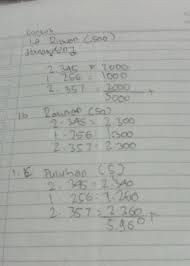 1.a Ribuan (500)
2.345 = 2000
1.256 = 1000
2.357 = 2000 +
5000
1b. Ratusan (50)
2.345 = 2.300
1.256 = 1.300
2.357 = 2.300
1.c Puluhan (5)
2.345 = 2.340
1.256 = 1.260
2.357 = 2.360 +
5.960